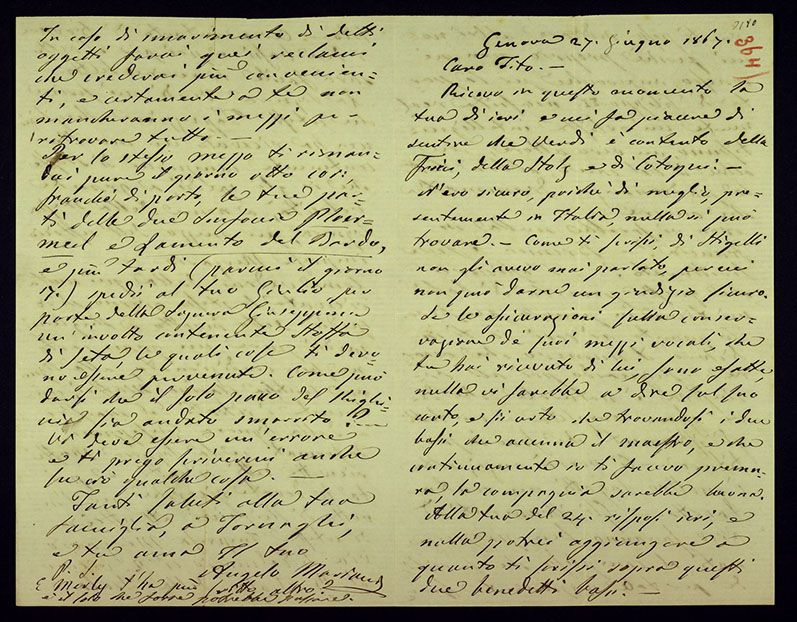 Genova 27. Giugno 1867.
Caro Tito. —
Ricevo in questo momento la
tua di ieri e mi fa piacere di
sentire che Verdi è contento della
Fricci, della Stolz e di Cotogni. —
N'ero sicuro, poichè di meglio, pre=
sentemente in Italia, nulla si può
trovare. — Come ti scrissi, di Stigelli
non gli avevo mai parlato, per cui
non può darne un giudizio sicuro.
Se le assicurazioni sulla conser=
vazione de' suoi mezzi vocali, che
tu hai ricevuto di lui, sono esatte,
nulla vi sarebbe a dire sul suo
conto, e sii certo che trovandosi i due
bassi che accenna il maestro, e che
continuamente io ti facevo premu=
ra, la compagnia sarebbe buona.
Alla tua del 24. risposi ieri, e
nulla potrei aggiungere a
quanto ti scrissi sopra questi
due benedetti bassi. —
In caso di smarrimento di detti
oggetti farai quei reclami
che crederai più convenien=
ti, e certamente a te non
mancheranno i mezzi per
ritrovare tutto. —
Per lo stesso mezzo ti riman=
dai pure il giorno otto corr:
franche di porto, le tue par=
ti delle due Sinfonie Ploër=
mel e Lamento del Bardo,
e più tardi (parmi il giorno
17.) spedii al tuo Giulio per
parte della Signora Giuseppina
un involto contenente stoffa
di seta, le quali cose ti devo=
no essere pervenute. Come può
darsi che il solo pacco del
sia andato smarrito?
Vi deve essere un errore
e ti prego scrivermi anche
su ciò qualche cosa. —
Tanti saluti alla tua
famiglia, a Tornaghi,
e tu ama il tuo
Angelo Mariani
P. S.
E Merly t'ha più scritto altro?
è il solo che forse potrebbe